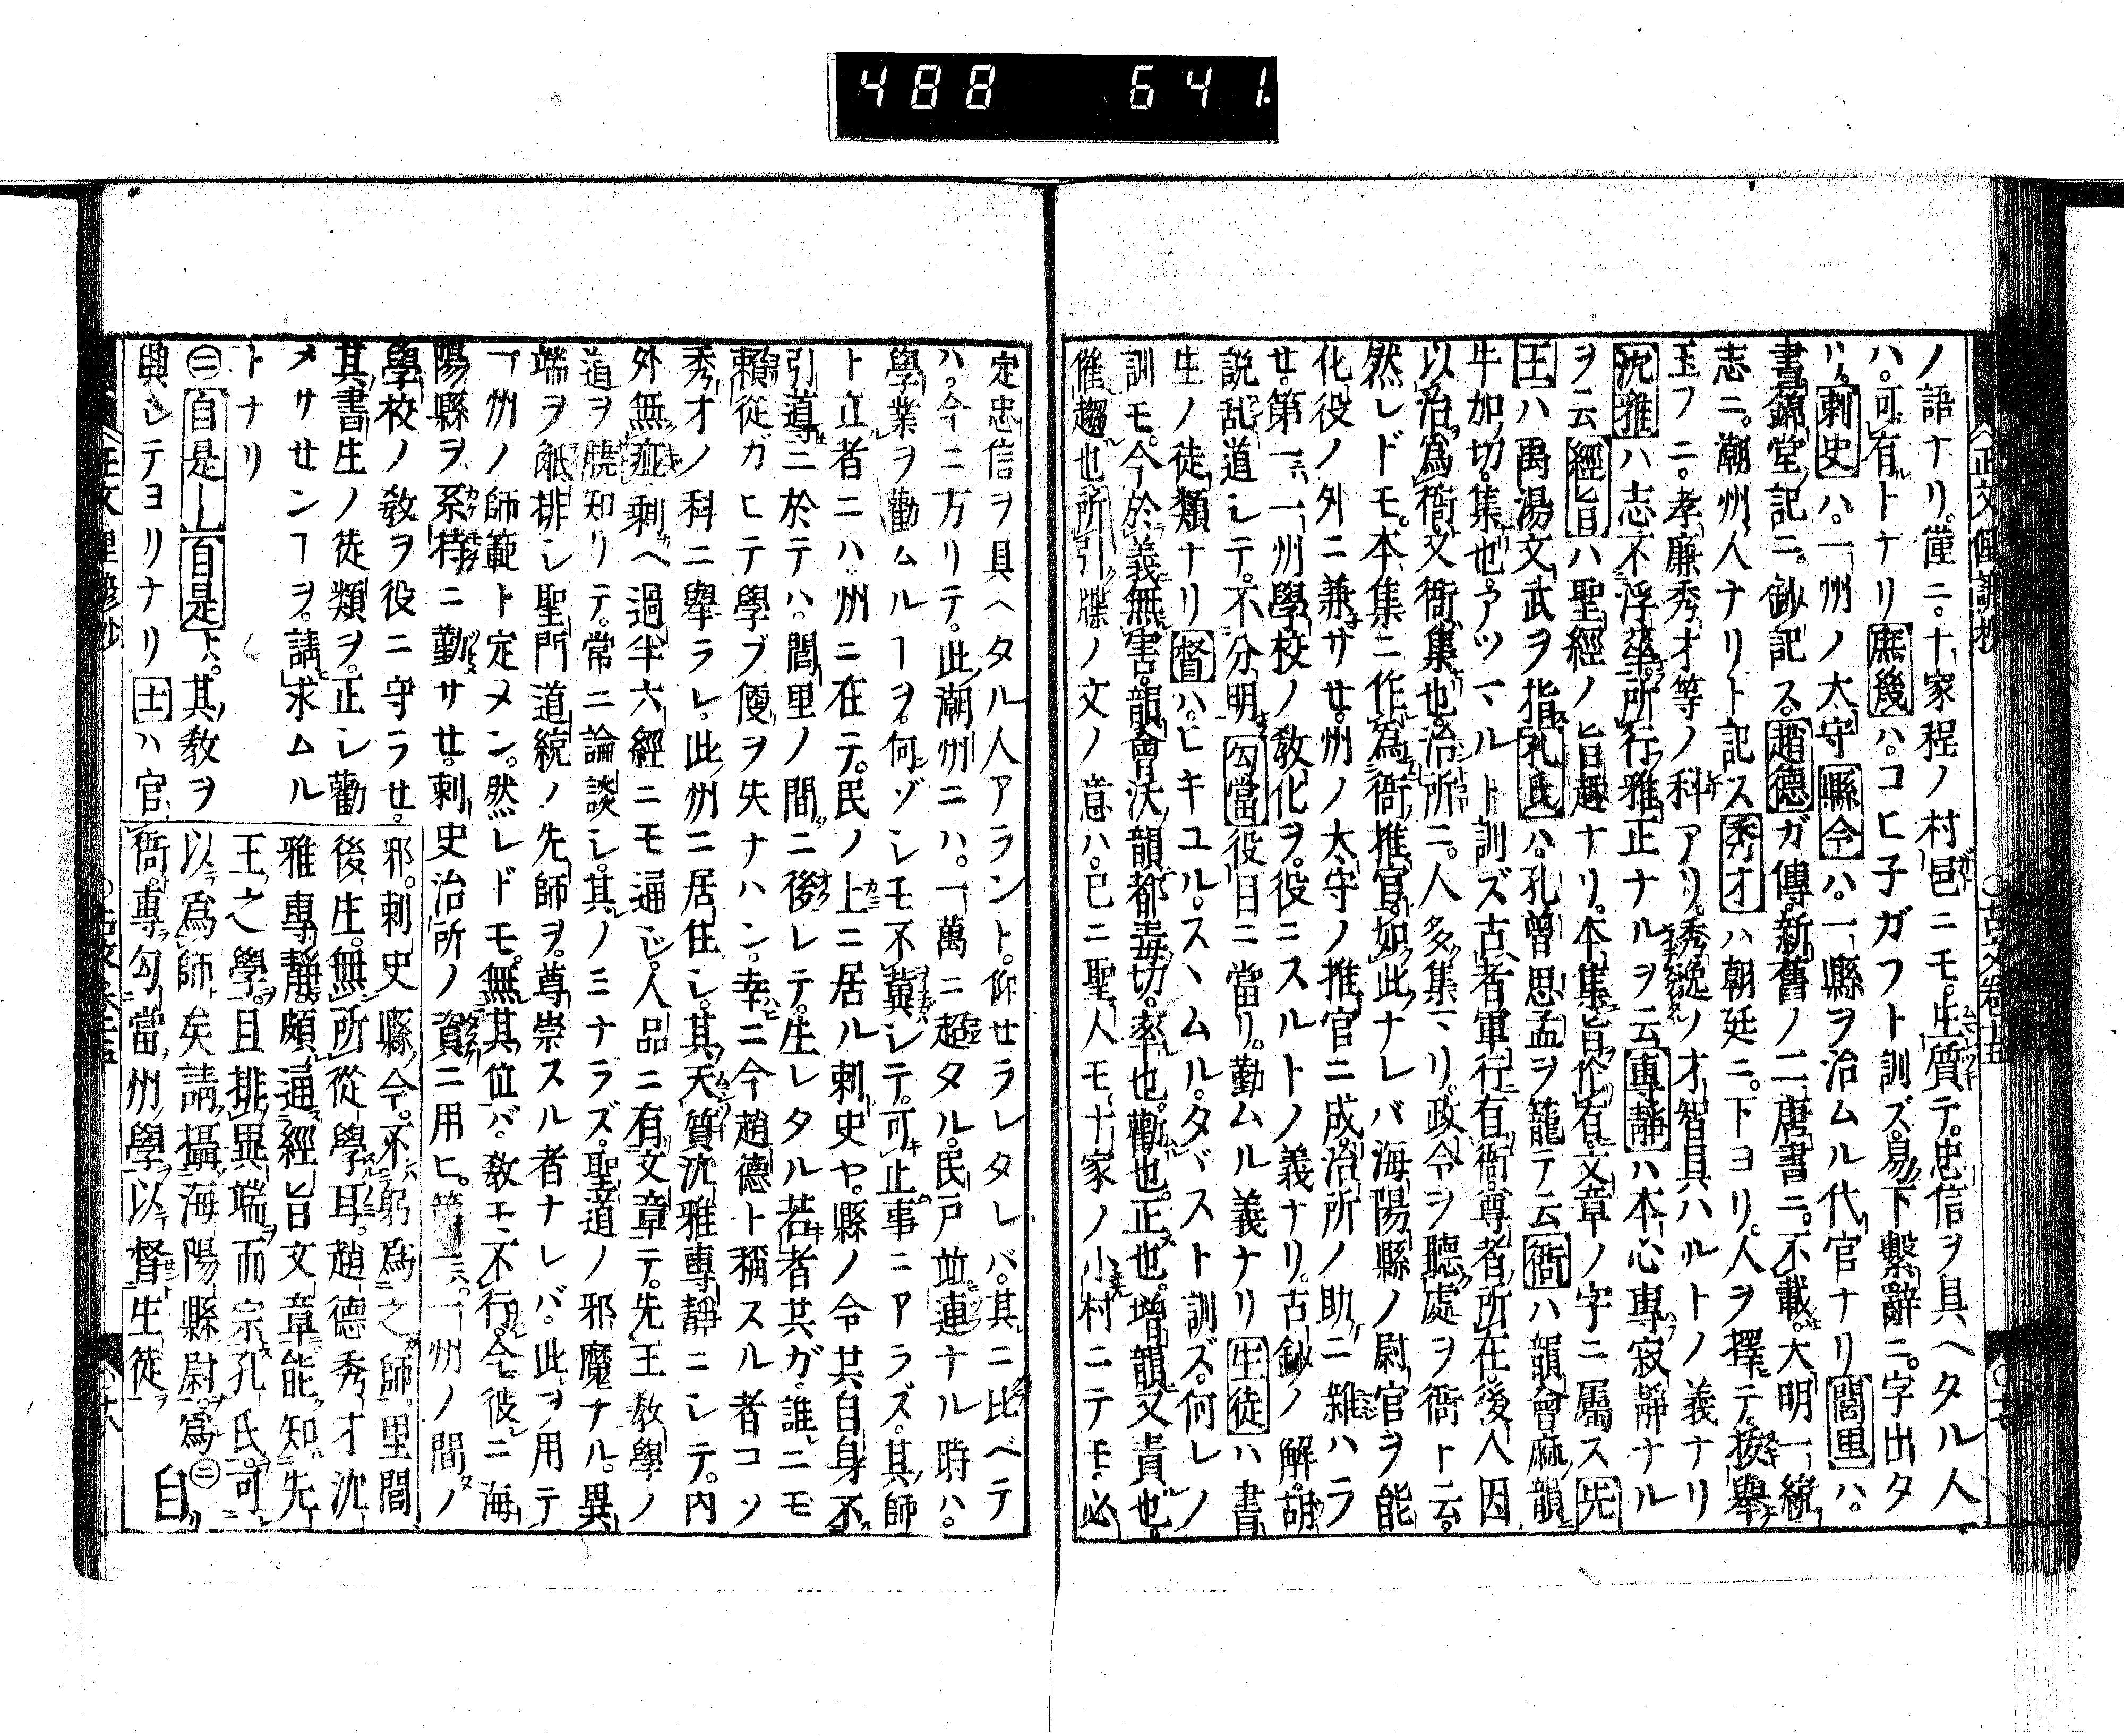 488 641
ノ語ナリ。僅ニ。十家程ノ村邑ニモ。生質テ。忠信ヲ具ヘタル人
ハ。可有トナリ庶幾ハ。コヒ子ガフト訓ズ。易下繫辭ニ。字出タ
リ。刺史ハ。一州ノ太守縣令ハ。一縣ヲ治ムル代官ナリ閭里ハ。
書錦堂記ニ。鈔記ス。趙德ガ傳。新舊ノ二唐書ニ。不載。大明一統
志ニ。潮州人ナリト記ス秀才ハ朝廷ニ。下ヨリ。人ヲ擇テ。按舉
玉フニ。孝廉秀才等ノ科アリ。秀逸ノ才智具ハルトノ義ナリ
沈雅ハ志不浮卒。所行雅正ナルヲ云專靜ハ本心專寂靜ナル
ヲ云經旨ハ聖經ノ旨趣ナリ。本集旨作有。文章ノ字ニ屬ス先
王ハ禹湯文武ヲ指孔氏ハ。孔曾思孟ヲ籠テ云衙ハ韻會麻韻
牛加切。集也。アツマルト訓ズ古者軍行有衙。尊者所在。後人因
以治為衙。又衙集也。治所ニ。人多集リ。政令ヲ聽處ヲ衙ト云。
然レドモ。本集ニ作為衙推官。如此ナレバ海陽縣ノ尉官ヲ能
化役ノ外ニ兼サせ。州ノ太守ノ推官ニ成。治所ノ助ニ雜ハラ
せ。第一ハ一州學校ノ教化ヲ。役ニスルトノ義ナリ。古鈔ノ解。胡
説乱道レテ。不分明勾當役目ニ當リ。勤ムル義ナリ生徒ハ書
生ノ徒類ナリ督ハ。ヒキユル。スヽムル。タヾスト訓ズ。何レノ
訓モ。今於義無害。韻會沃韻都毒切。率也。勸也。正也。增韻又責也。
催趨也所引牒ノ文ノ意ハ。已ニ聖人モ。十家ノ小村ニテモ。必
定忠信ヲ具ヘタル人アラント。仰せラレタレバ。其ニ比ベテ
ハ。今ニ万リテ。此潮州ニハ。一萬ニ超タル。民戸並連ナル時ハ。
學業ヲ勸ムルヿヲ。何ゾレモ不冀レテ。可止事ニアラズ。其師
ト立者ニハ州ニ在テ。民ノ上ニ居ル刺史ヤ。縣ノ令其自身不
引導ニ於テハ。閭里ノ間ニ後レテ。生レタル若者其ガ。誰ニモ
賴從ガヒテ學ブ便ヲ失ナハン。幸ニ今趙德ト稱スル者コソ
秀才ノ科ニ舉ラレ。此州ニ居住レ。其天質沈雅專靜ニレテ。内
外無疵。剩ヘ過半六經ニモ通ジ。人品ニ有文章テ。先王教學ノ
道ヲ曉知リテ。常ニ論談レ。其ノミナラズ。聖道ノ邪魔ナル。異
端ヲ觝排レ聖門道統ノ先師ヲ。尊崇スル者ナレバ。此ヲ用テ
一州ノ師範ト定メン。然レドモ。無其位バ。教モ不行。今彼ニ海
陽縣ヲ系持ニ勤サせ。刺史治所ノ資ニ用ヒ。第一ハ。一州ノ間ノ
學校ノ教ヲ役ニ守ラせ。
其書生ノ徒類ヲ。正レ勸
メサせンヿヲ。請求ムル
トナリ
㊁自是ー自是ハ。其教ヲ
興レテヨリナリ士ハ官
邪。刺史縣令。不躬為之師。里閭
後生。無所從學耳。趙德秀才沈
雅專靜。頗通經旨文章。能知先
王之學。且排異端而宗孔氏。可
以為師矣。請攝海陽縣尉。為㊁
衙。專勾當州學以督生徒。自